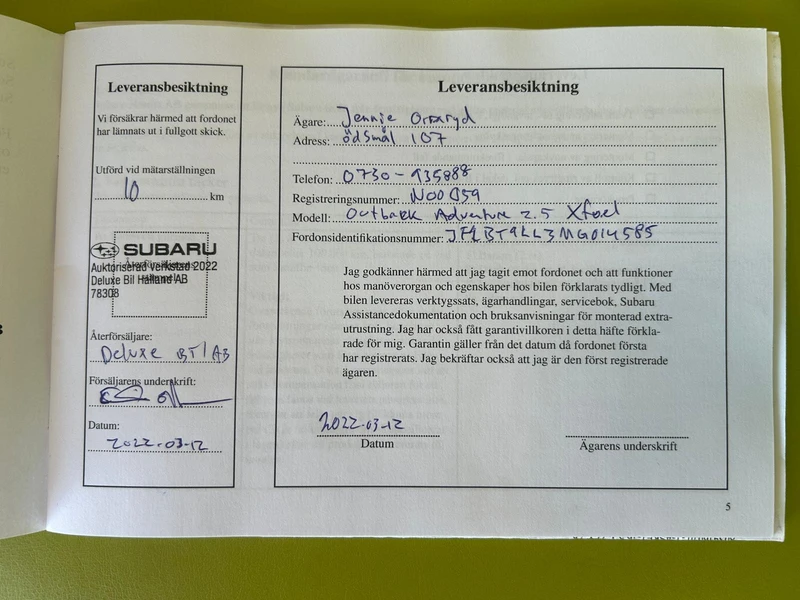 Leveransbesiktning
Vi försäkrar härmed att fordonet
har lämnats ut i fullgott skick.
Utförd vid mätarställningen
10 km
SUBARU
Auktoriserad verkstad 2022
Deluxe Bil Halland AB
78308
Återförsäljare:
Deluxe Bil AB
Försäljarens underskrift:
Datum:
2022-03-12
Leveransbesiktning
Ägare: Jennie
Adress: Ödsmål 107
Telefon: 0730-935888
Registreringsnummer:
Modell: Outback Adventure 2.5 Xfuel
Fordonsidentifikationsnummer: JF1BT9LL3MG014585
Jag godkänner härmed att jag tagit emot fordonet och att funktioner
hos manöverorgan och egenskaper hos bilen förklarats tydligt. Med
bilen levereras verktygssats, ägarhandlingar, servicebok, Subaru
Assistancedokumentation och bruksanvisningar för monterad extra-
utrustning. Jag har också fått garantivillkoren i detta häfte förkla-
rade för mig. Garantin gäller från det datum då fordonet första
har registrerats. Jag bekräftar också att jag är den först registrerade
ägaren.
2022-03-12
Datum
Ägarens underskrift
5